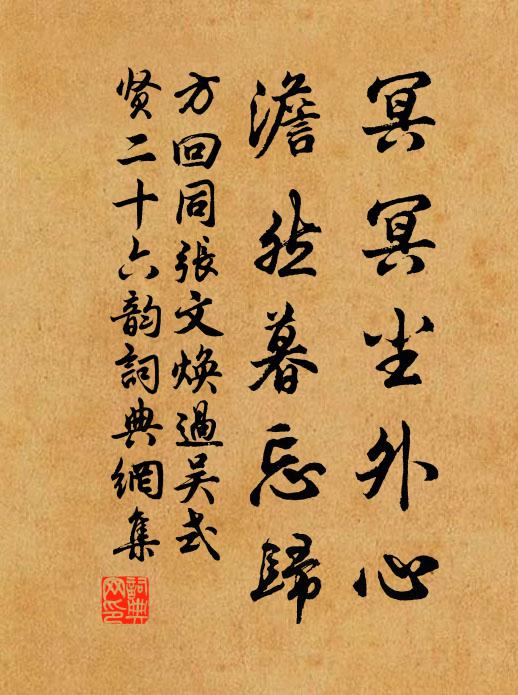 冥冥尘外心
澹然暮忘歸
方回同張文焕過吴式
贤二十六韵詞典網集
詞典网印